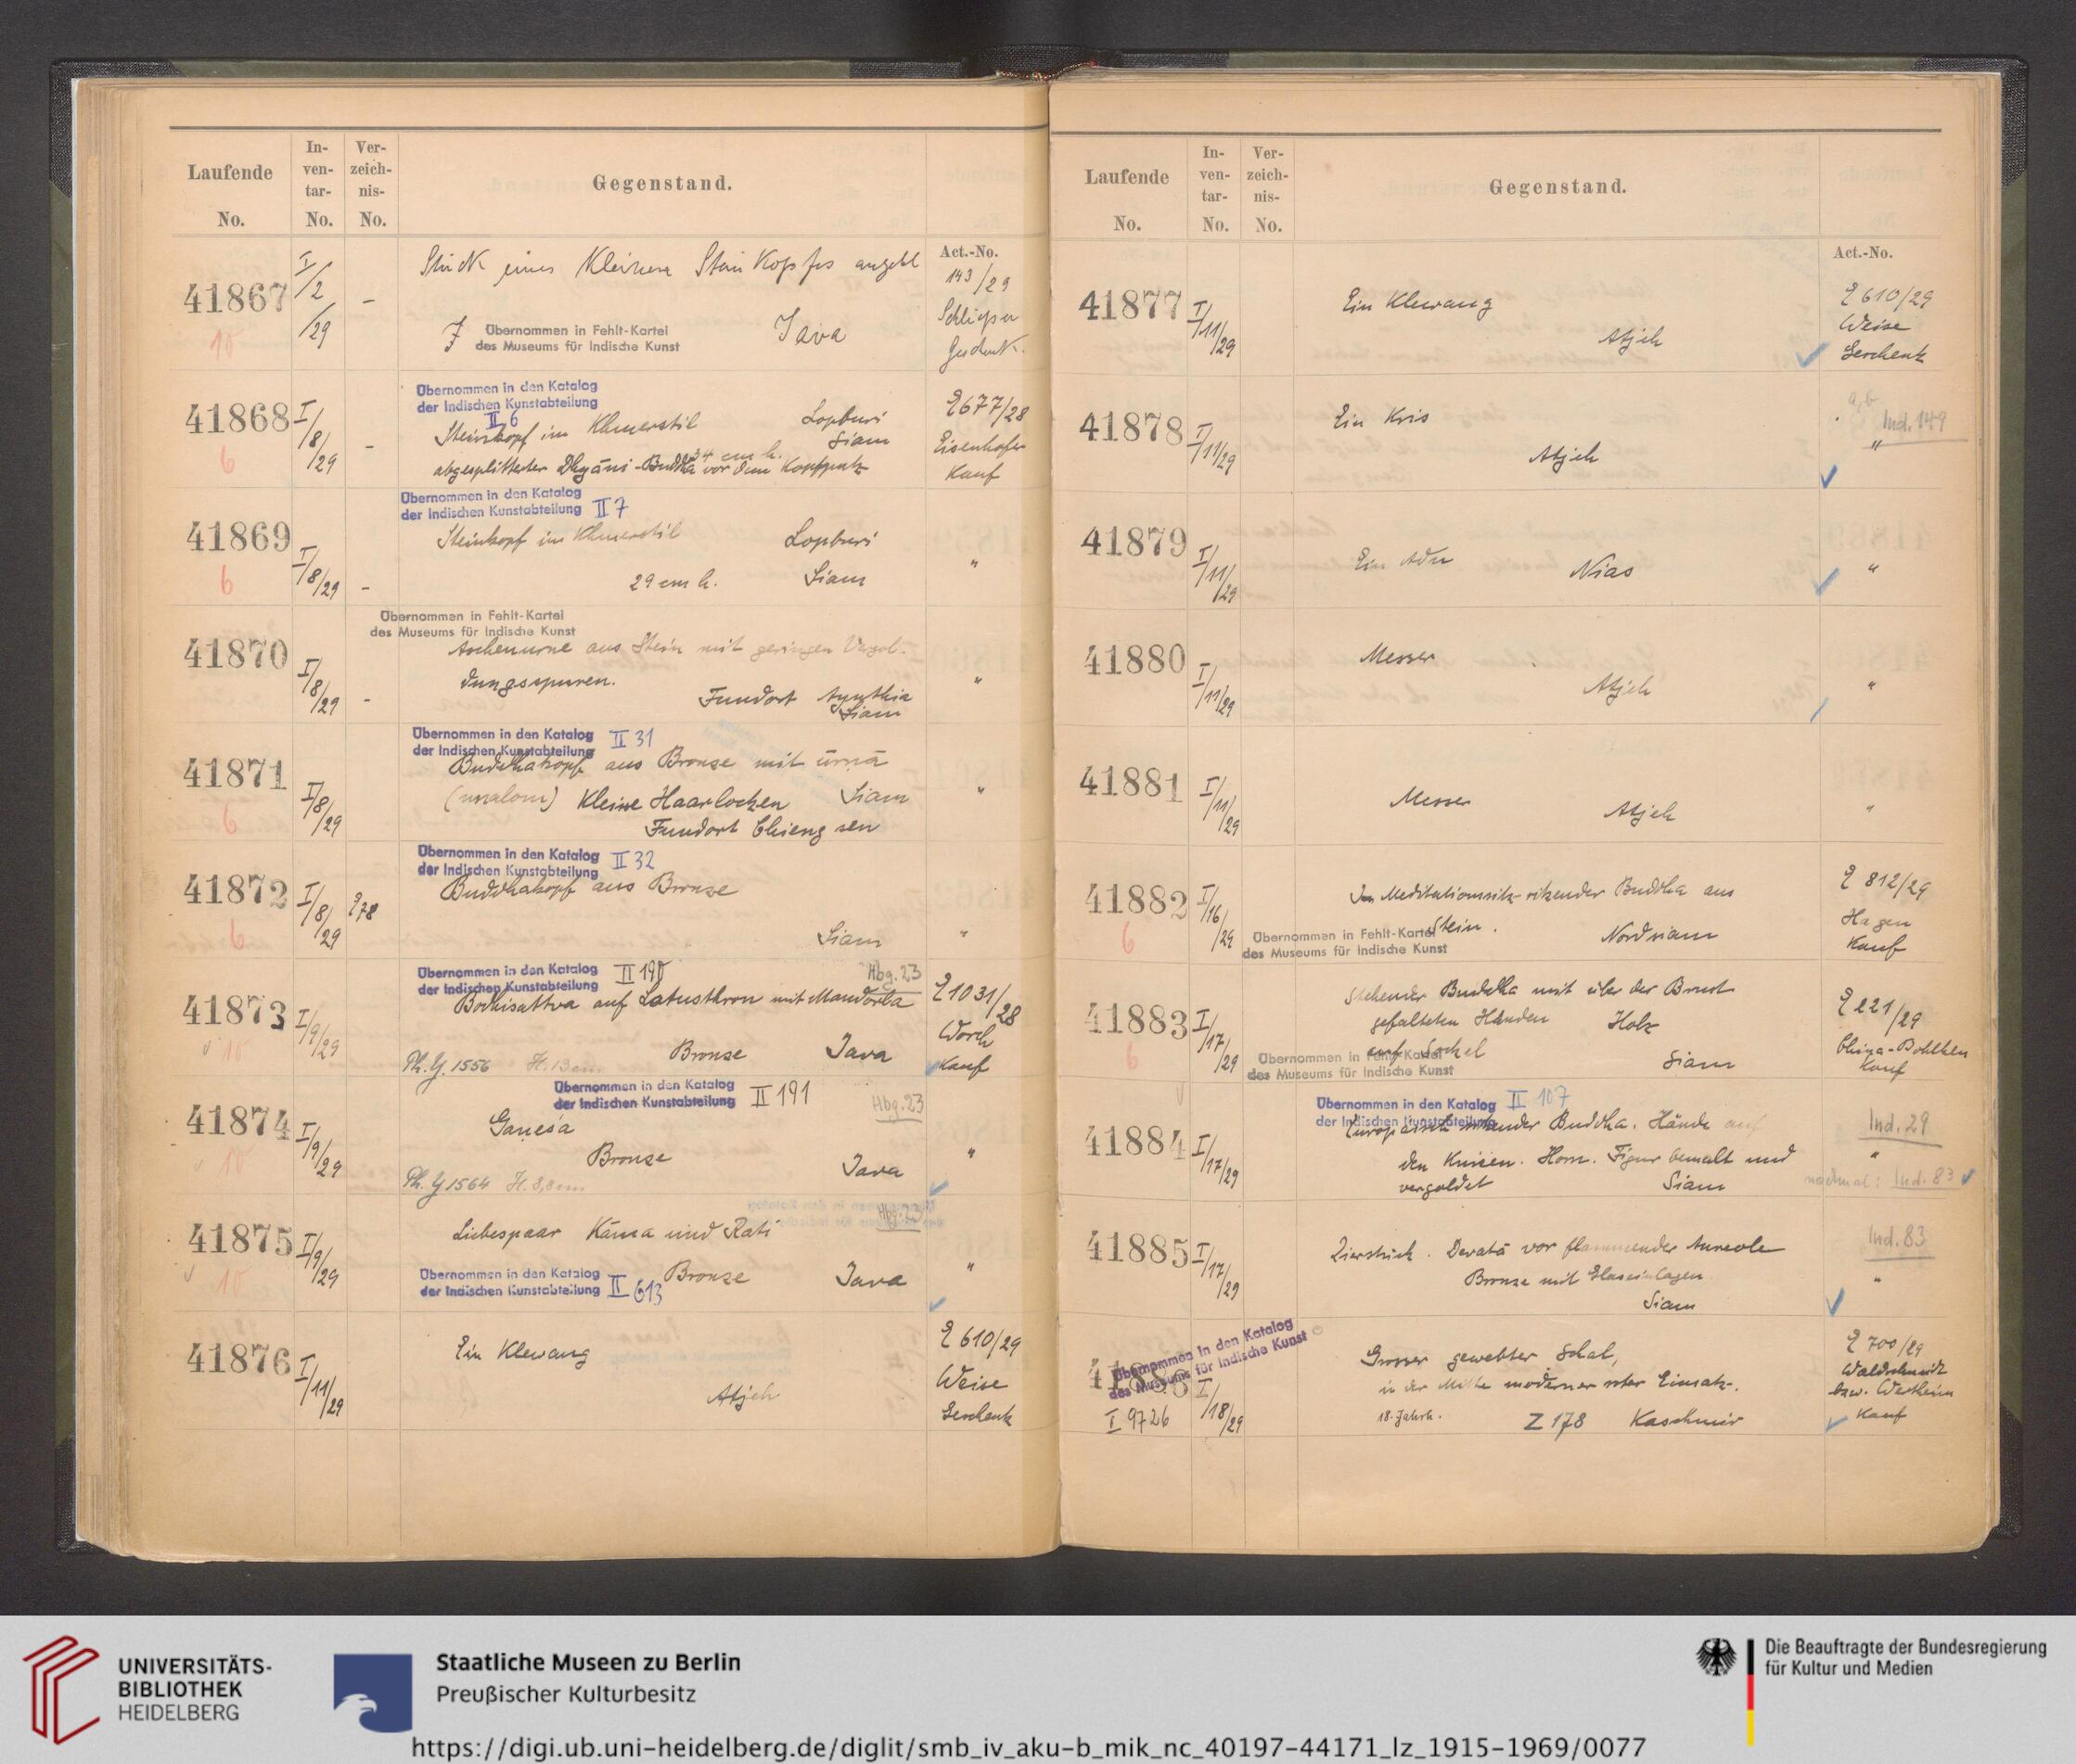 Laufende No.
In-ven-tar-No.
Ver-zeich-nis-No.
Gegenstand.
Act.-No.
41867
I/2/29
-
10
Stück eines kleinen Steinkopfes
Übernommen in Fehlt-Kartei
des Museums für Indische Kunst
Java
143/29
Geschenk.
41868
6
I/8/29
-
Übernommen in den Katalog
der Indischen Kunstabteilung
II 6
Steinkopf im Khmerstil Lopburi
34 cm h. Siam
abgesplitterter Dhyāni-Buddha vor dem Kopfputz
E 677/28
Eisenhofer
Kauf
41869
6
I/8/29
-
Übernommen in den Katalog
der Indischen Kunstabteilung II 7
Steinkopf im Khmerstil Lopburi
29 cm h. Siam
"
41870
I/8/29
-
Übernommen in Fehlt-Kartei
des Museums für Indische Kunst
Aschenurne aus Stein mit geringen Vergol-
dungsspuren.
Fundort Ayuthia
Siam
"
41871
6
I/8/29
Übernommen in den Katalog
der Indischen Kunstabteilung II 31
Buddhakopf aus Bronze mit ūrnā
(unalom) Kleine Haarlocken Siam
Fundort Chieng sen
"
41872
6
I/8/29
Übernommen in den Katalog
der Indischen Kunstabteilung II 32
Buddhakopf aus Bronze
Siam
"
41873
10
I/9/29
Übernommen in den Katalog
der Indischen Kunstabteilung II 190
Hbg. 23
Bodhisattva auf Lotusthron mit Mandorla
Ph. G. 1556 H. 13 cm Bronze Java
E 1031/28
Worch
Kauf
41874
10
I/9/29
Übernommen in den Katalog
der Indischen Kunstabteilung II 191
Hbg. 23
Ganeśa
Bronze
Ph. G 1564 H. 8,8 cm Java
"
41875
10
I/9/29
Hbg. 23
Liebespaar Kāma und Rati
Übernommen in den Katalog
der Indischen Kunstabteilung II 613
Bronze Java
"
41876
I/11/29
Ein Klewang
Atjeh
E 610/29
Weise
Geschenk
Laufende No.
In-ven-tar-No.
Ver-zeich-nis-No.
Gegenstand.
Act.-No.
41877
I/11/29
Ein Klewang
Atjeh
E 610/29
Weise
Geschenk
41878
I/11/29
Ein Kris
Atjeh
a,b
Ind. 149
"
41879
I/11/29
Ein Adu Nias
"
41880
I/11/29
Messer
Atjeh
"
41881
I/11/29
Messer
Atjeh
"
41882
6
I/16/29
Im Meditationssitz sitzender Buddha aus
Stein. Nordsiam
Übernommen in Fehlt-Kartei
des Museums für Indische Kunst
E 812/29
Hagen
Kauf
41883
6
I/17/29
Stehender Buddha mit über der Brust
gefalteten Händen Holz
auf Sockel Siam
Übernommen in Fehlt-Kartei
des Museums für Indische Kunst
E 221/29
China-Bohlken
Kauf
41884
I/17/29
Übernommen in den Katalog
der Indischen Kunstabteilung
II 107
Europäisch sitzender Buddha. Hände auf
den Knieen. Horn. Figur bemalt und
vergoldet Siam
Ind. 29
"
nochmal: Ind. 83
41885
I/17/29
Zierstück. Devatā vor flammender Aureole
Bronze mit Glaseinlagen
Siam
Ind. 83
"
41886
I 9726
I/18/29
Übernommen in den Katalog
des Museums für Indische Kunst
Grosser gewebter Schal,
in der Mitte moderner roter Einsatz.
18. Jahrh. Z 178 Kaschmir
E 700/29
Waldschmidt
bzw. Wertheim
Kauf
UNIVERSITÄTS-
BIBLIOTHEK
HEIDELBERG
Staatliche Museen zu Berlin
Preußischer Kulturbesitz
Die Beauftragte der Bundesregierung
für Kultur und Medien
https://digi.ub.uni-heidelberg.de/diglit/smb_iv_aku-b_mik_nc_40197-44171_lz_1915-1969/0077